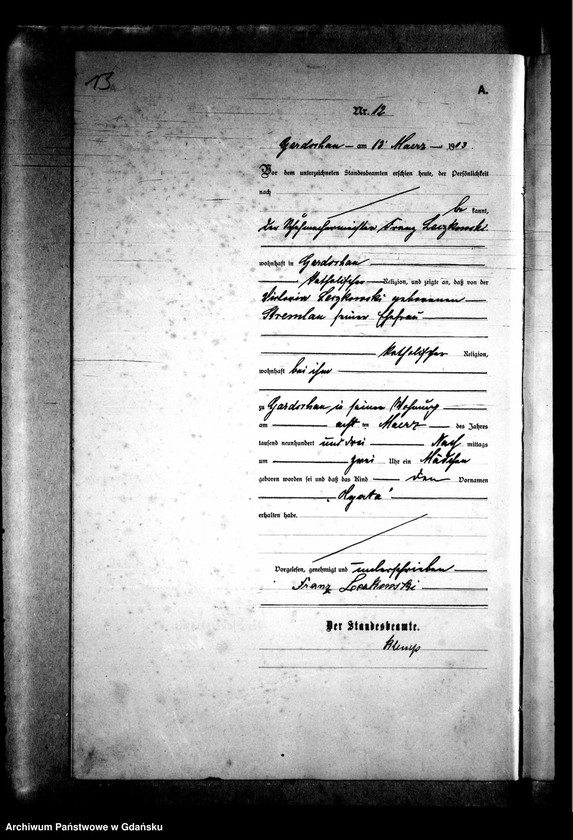 13.
A.
Nr. 12
Gardschau am 13 Maerz 1903.
Vor dem unterzeichneten Standesbeamten erschien heute, der Persönlichkeit
nach
be kannt,
der Franz Leczkowski
wohnhaft in Gardschau
katholischer Religion, und zeigte an, daß von der
Viktoria Leczkowski geborenen
Stremlau seiner Ehefrau
katholischer Religion,
wohnhaft bei ihm
zu Gardschau in seiner Wohnung
am acht ten Maerz des Jahres
tausend neunhundert und drei Nach mittags
um zwei Uhr ein Mädchen
geboren worden sei und daß das Kind den Vornamen
„Agata“
erhalten habe.
Vorgelesen, genehmigt und unterschrieben
Franz Leczkowski
Der Standesbeamte.
Klemp
Archiwum Państwowe w Gdańsku